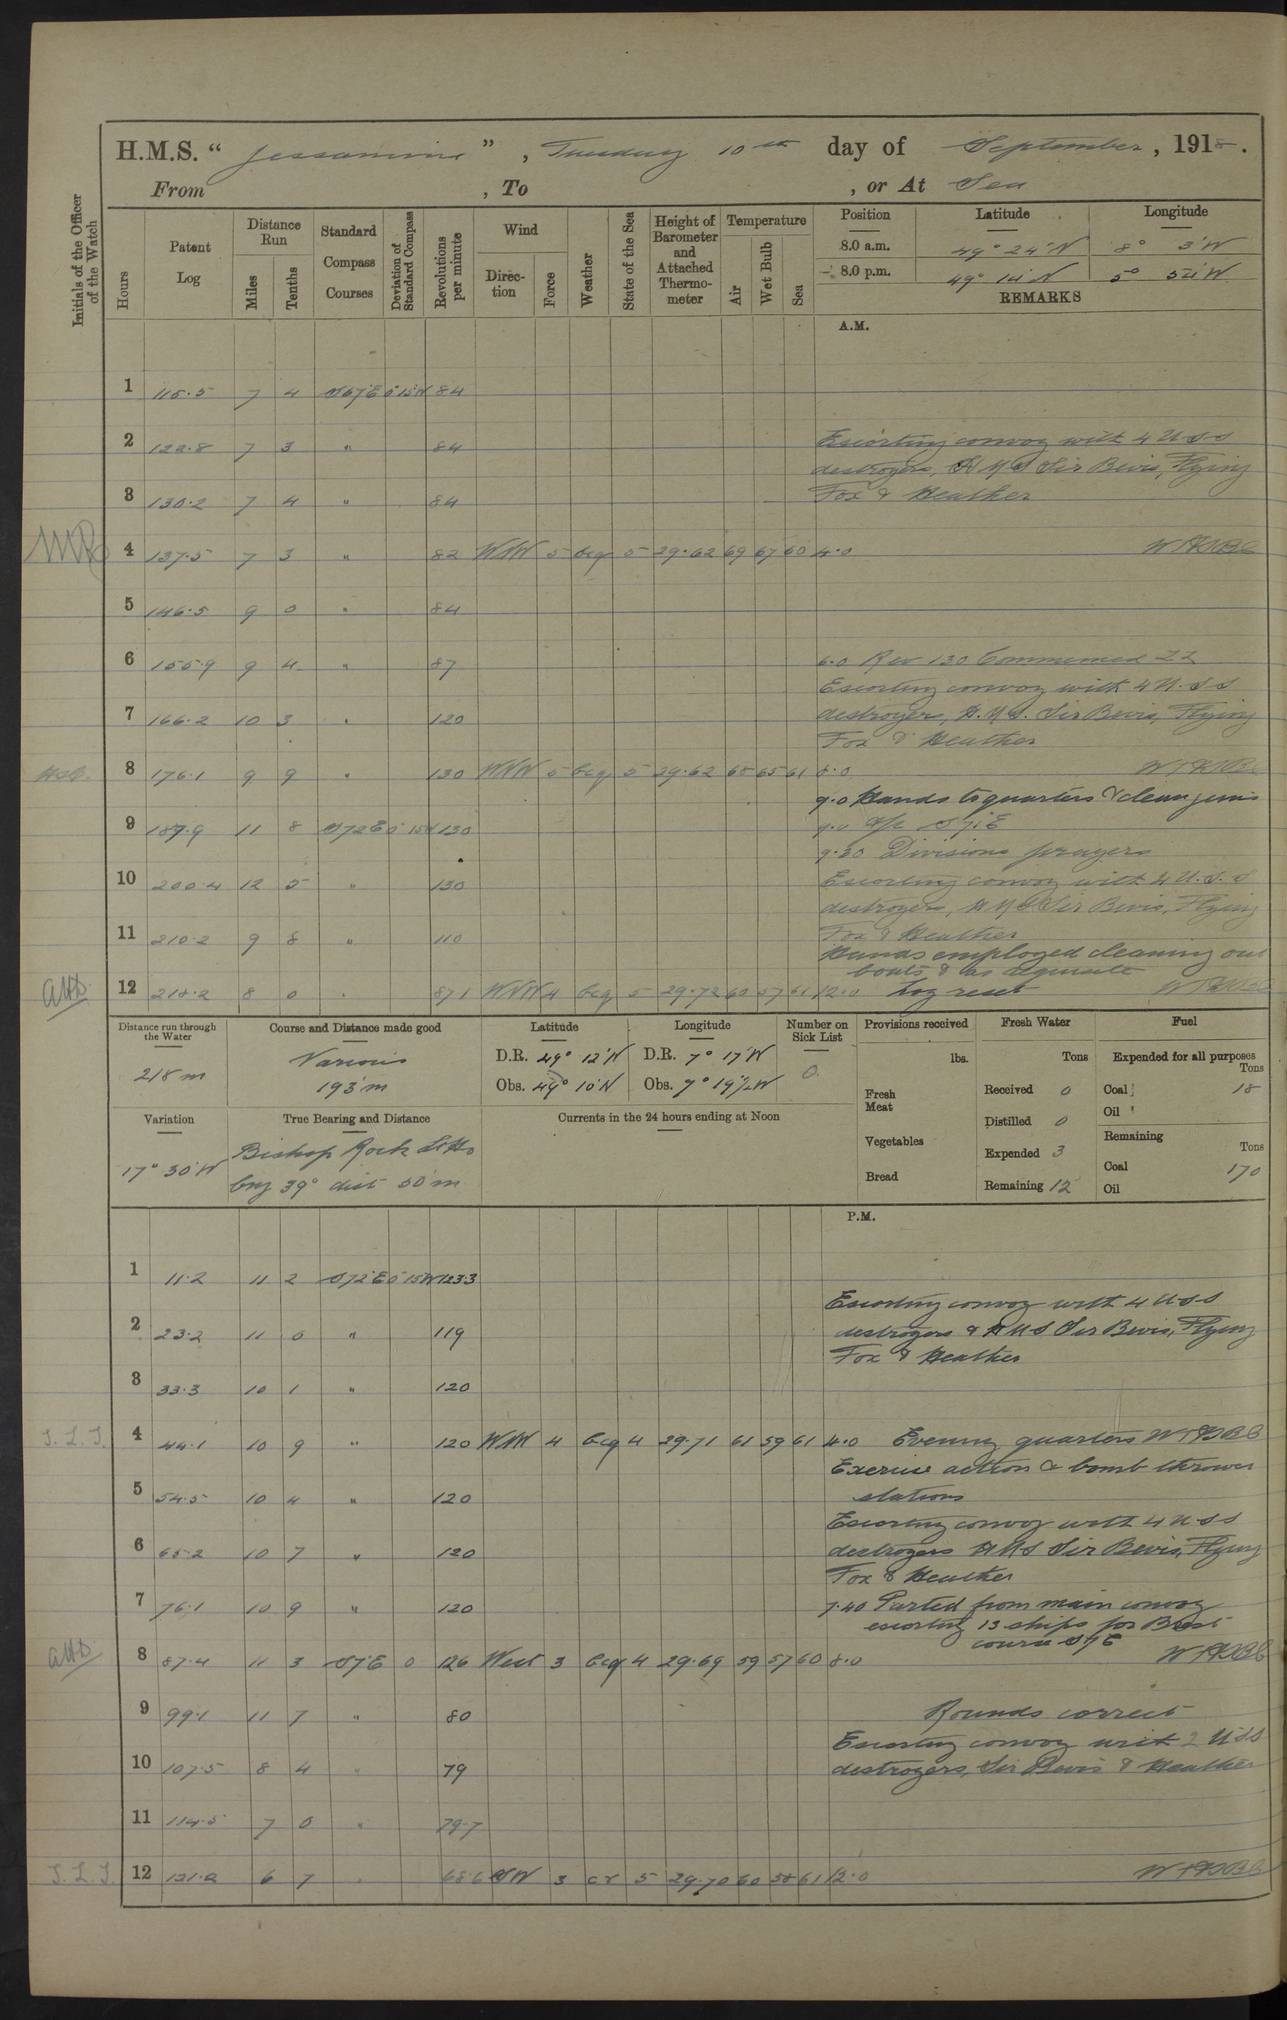 H.M.S. " Jessamine ", Tuesday 10th day of September, 1918.
From , To , or At Sea
Initials of the Officer of the Watch
Hours
Patent Log
Distance Run
Miles
Tenths
Standard Compass Courses
Deviation of Standard Compass
Revolutions per minute
Wind
Direction
Force
Weather
State of the Sea
Height of Barometer and Attached Thermometer
Temperature
Air
Wet Bulb
Sea
Position Latitude Longitude
8.0 a.m. 49° 24' N 8° 3' W
8.0 p.m. 49° 14' N 5° 52' W
REMARKS
A.M.
1 115.5 7 4 S67E 0 15W 84
2 122.8 7 3 " 84 Escorting convoy with 4 USS
destroyers, HMS Sir Bevis, Flying
3 130.2 7 4 " 84 Fox & Heather
4 137.5 7 3 " 82 WNW 5 bcq 5 29.62 69 67 60 4.0
5 146.5 9 0 " 84
6 155.9 9 4 " 87 6.0 Rev 130 Commenced ZZ
Escorting convoy with 4 U.S.S
7 166.2 10 3 " 120 destroyer, H.M.S. Sir Bevis, Flying
Fox & Heather
8 176.1 9 9 " 130 WNW 5 bcq 5 29.62 68 65 61 8.0
9.0 Hands to quarters & clean guns
9 187.9 11 8 S72E 0 15W 130 9.0 A/c S71E
9.30 Divisions prayers
10 200.4 12 5 " 130 Escorting convoy with 4 U.S.S
destroyers, HMS Sir Bevis, Flying
11 210.2 9 8 " 110 Fox & Heather
Hands employed cleaning out
boats & as requisite
12 218.2 8 0 " 87.1 WNW 4 bcq 5 29.72 60 57 61 12.0 Log reset
Distance run through the Water
218 m
Course and Distance made good
Various
193'm
Latitude
D.R. 49° 12' N
Obs. 49° 10' N
Longitude
D.R. 7° 17' W
Obs. 7° 19½' W
Number on Sick List
0
Provisions received
lbs.
Fresh Meat
Vegetables
Bread
Fresh Water
Tons
Received 0
Distilled 0
Expended 3
Remaining 12
Fuel
Expended for all purposes
Tons
Coal 18
Oil
Remaining
Tons
Coal 170
Oil
Variation
17° 30' W
True Bearing and Distance
Bishop Rock Lt Ho
brg 39° dist 50'm
Currents in the 24 hours ending at Noon
P.M.
1 11.2 11 2 S72E 0 15W 123.3
Escorting convoy with 4 USS
2 23.2 11 0 " 119 destroyers & HMS Sir Bevis, Flying
Fox & Heather
3 33.3 10 1 " 120
J.L.J. 4 44.1 10 9 " 120 WNW 4 bcq 4 29.71 61 59 61 4.0 Evening quarters
Exercise action & bomb thrower
5 54.5 10 4 " 120 stations
Escorting convoy with 4 USS
6 65.2 10 7 " 120 destroyers HMS Sir Bevis, Flying
Fox & Heather
7 76.1 10 9 " 120 7.40 Parted from main convoy
escorting 13 ships for Brest
course S7E
8 87.4 11 3 S7E 0 126 West 3 bcq 4 29.69 59 57 60 8.0
9 99.1 11 7 " 80 Rounds correct
Escorting convoy with 2 USS
10 107.5 8 4 " 79 destroyers, Sir Bevis & Heather
11 114.5 7 0 " 79.7
J.L.J. 12 121.2 6 7 " 68.6 SW 3 cr 5 29.70 60 58 61 12.0